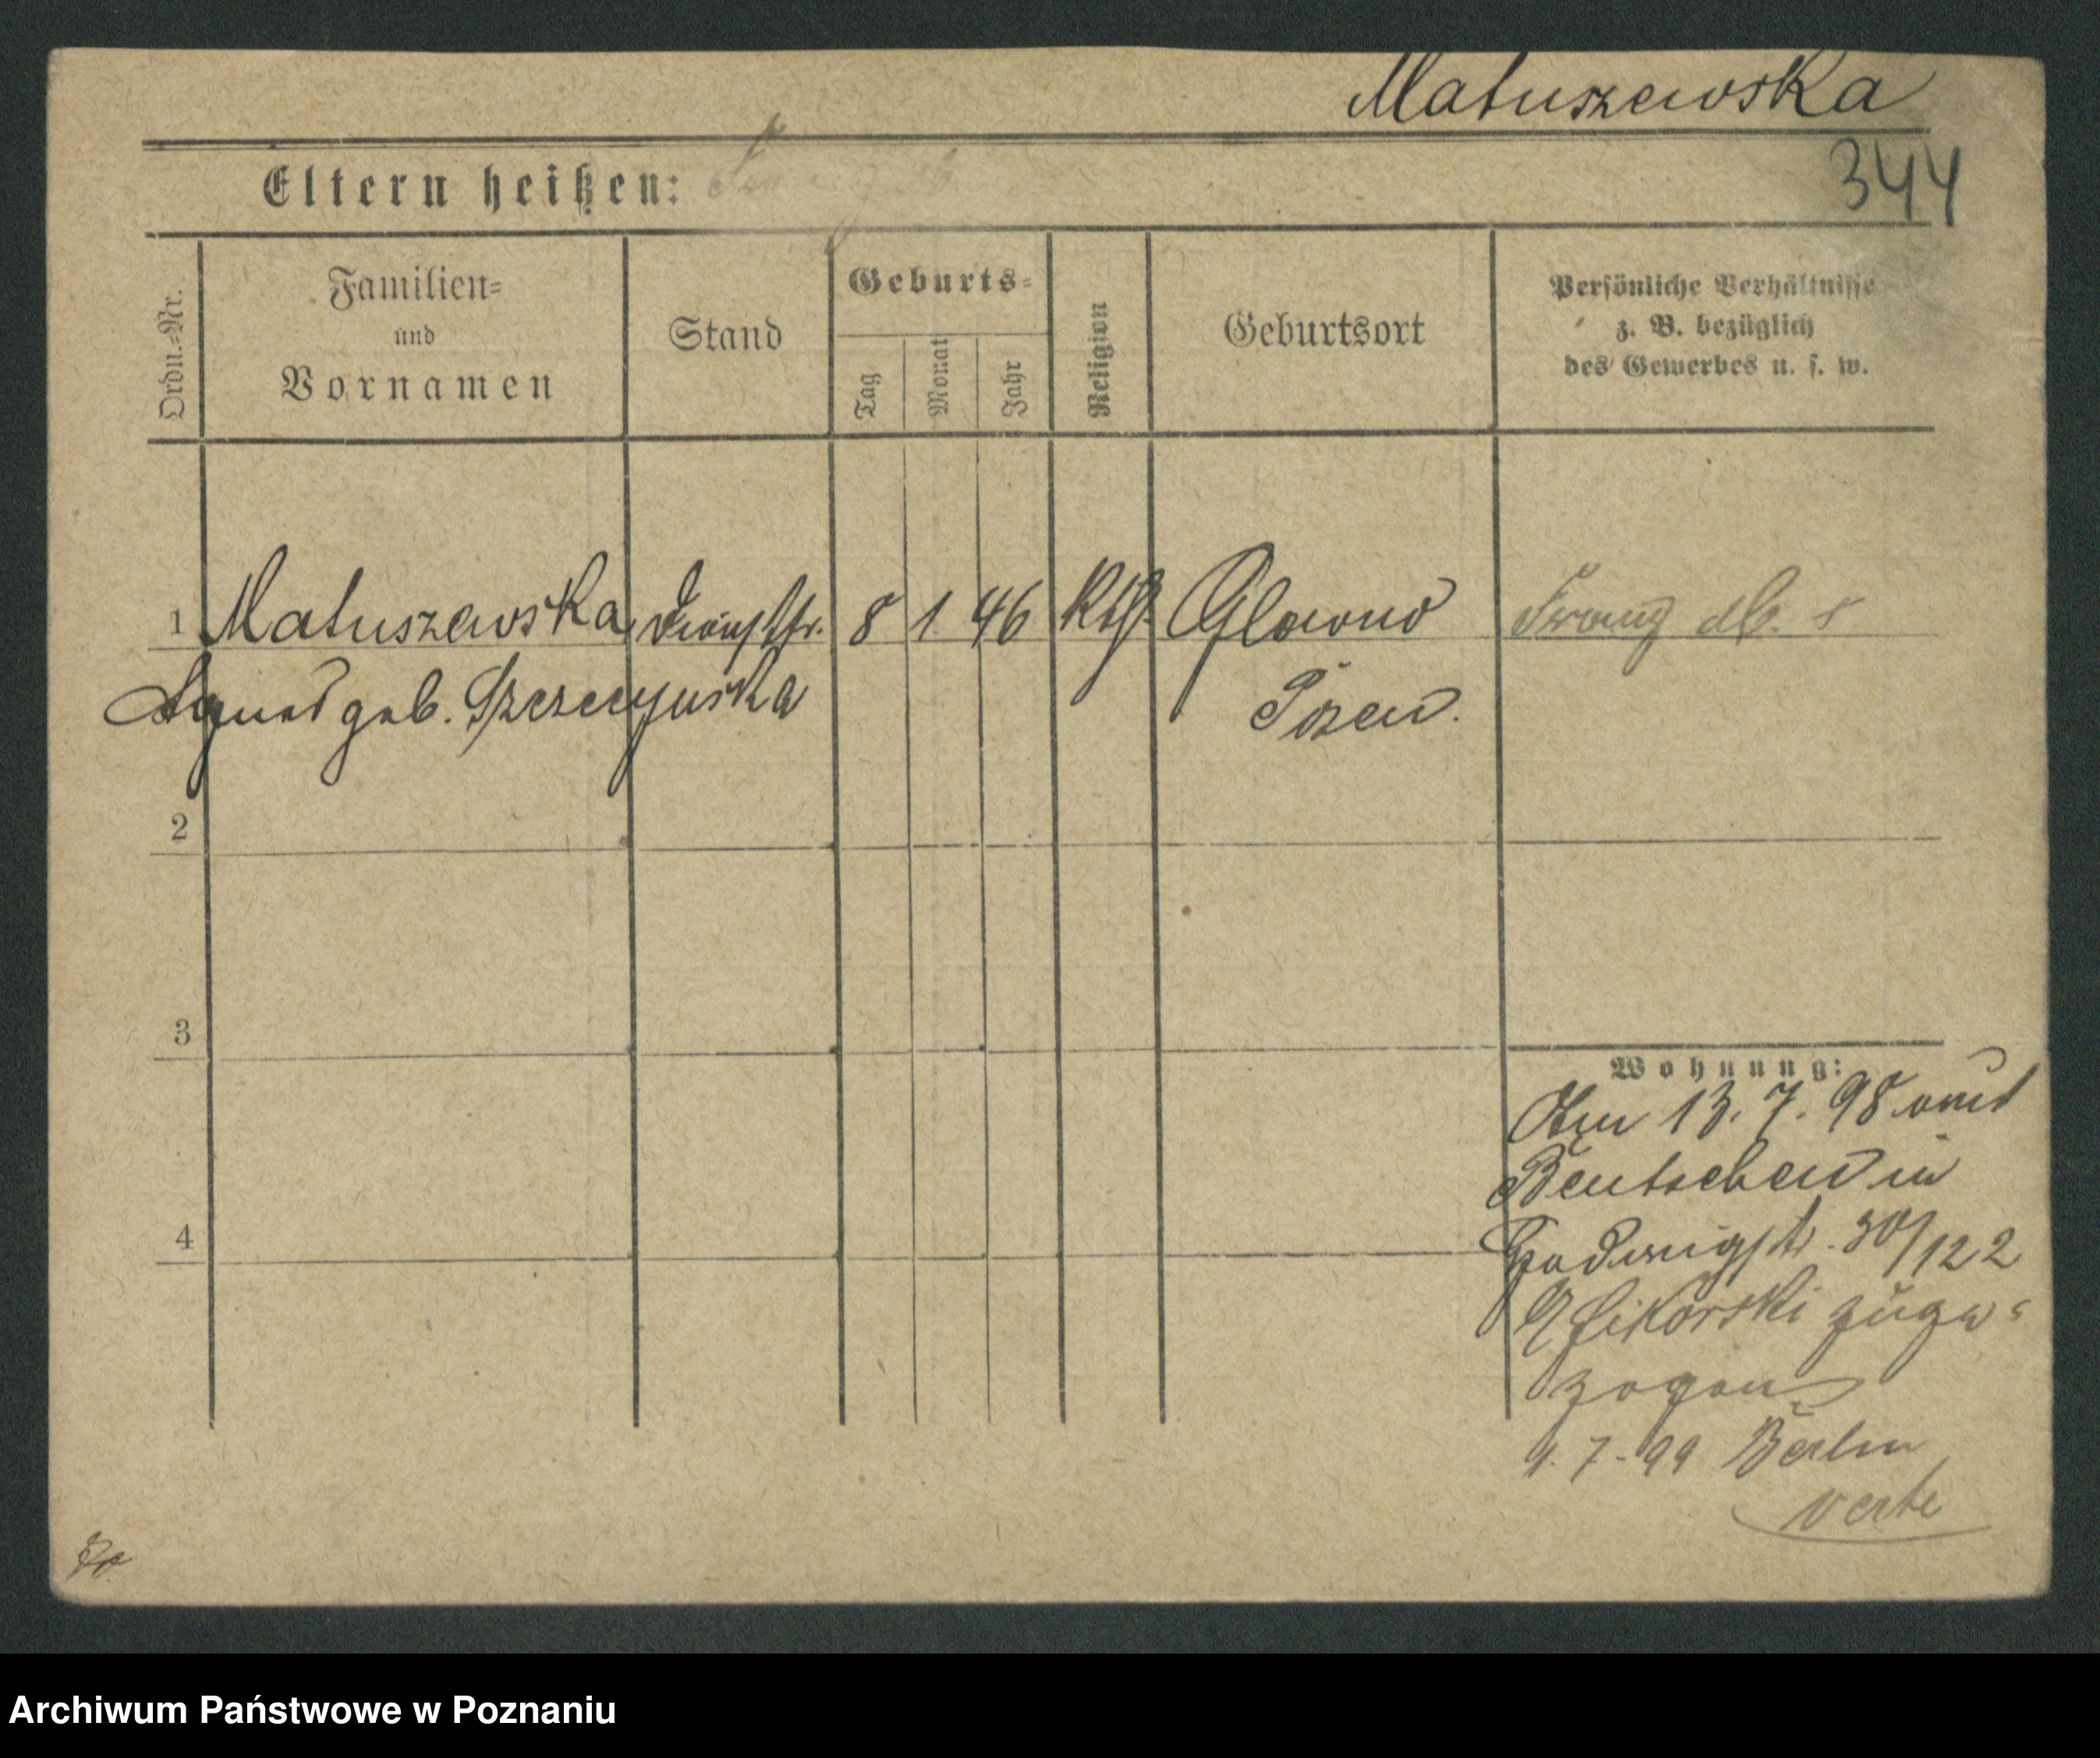 Matuszewska
344
Eltern heißen:
Ordn.-Nr.
Familien-
und
Vornamen
Stand
Geburts-
Tag
Monat
Jahr
Religion
Geburtsort
Persönliche Verhältnisse
z. B. bezüglich
des Gewerbes u. s. w.
1 Matuszewska 8 1 46 Kth. Glowno Franz
Agnes geb. Posen.
2
3
4
Wohnung:
Am 13. 7. 98 aus
Bentschen in
30/122
Sikorski zuge-
zogen
1. 7. 99 Berlin
verte
Archiwum Państwowe w Poznaniu